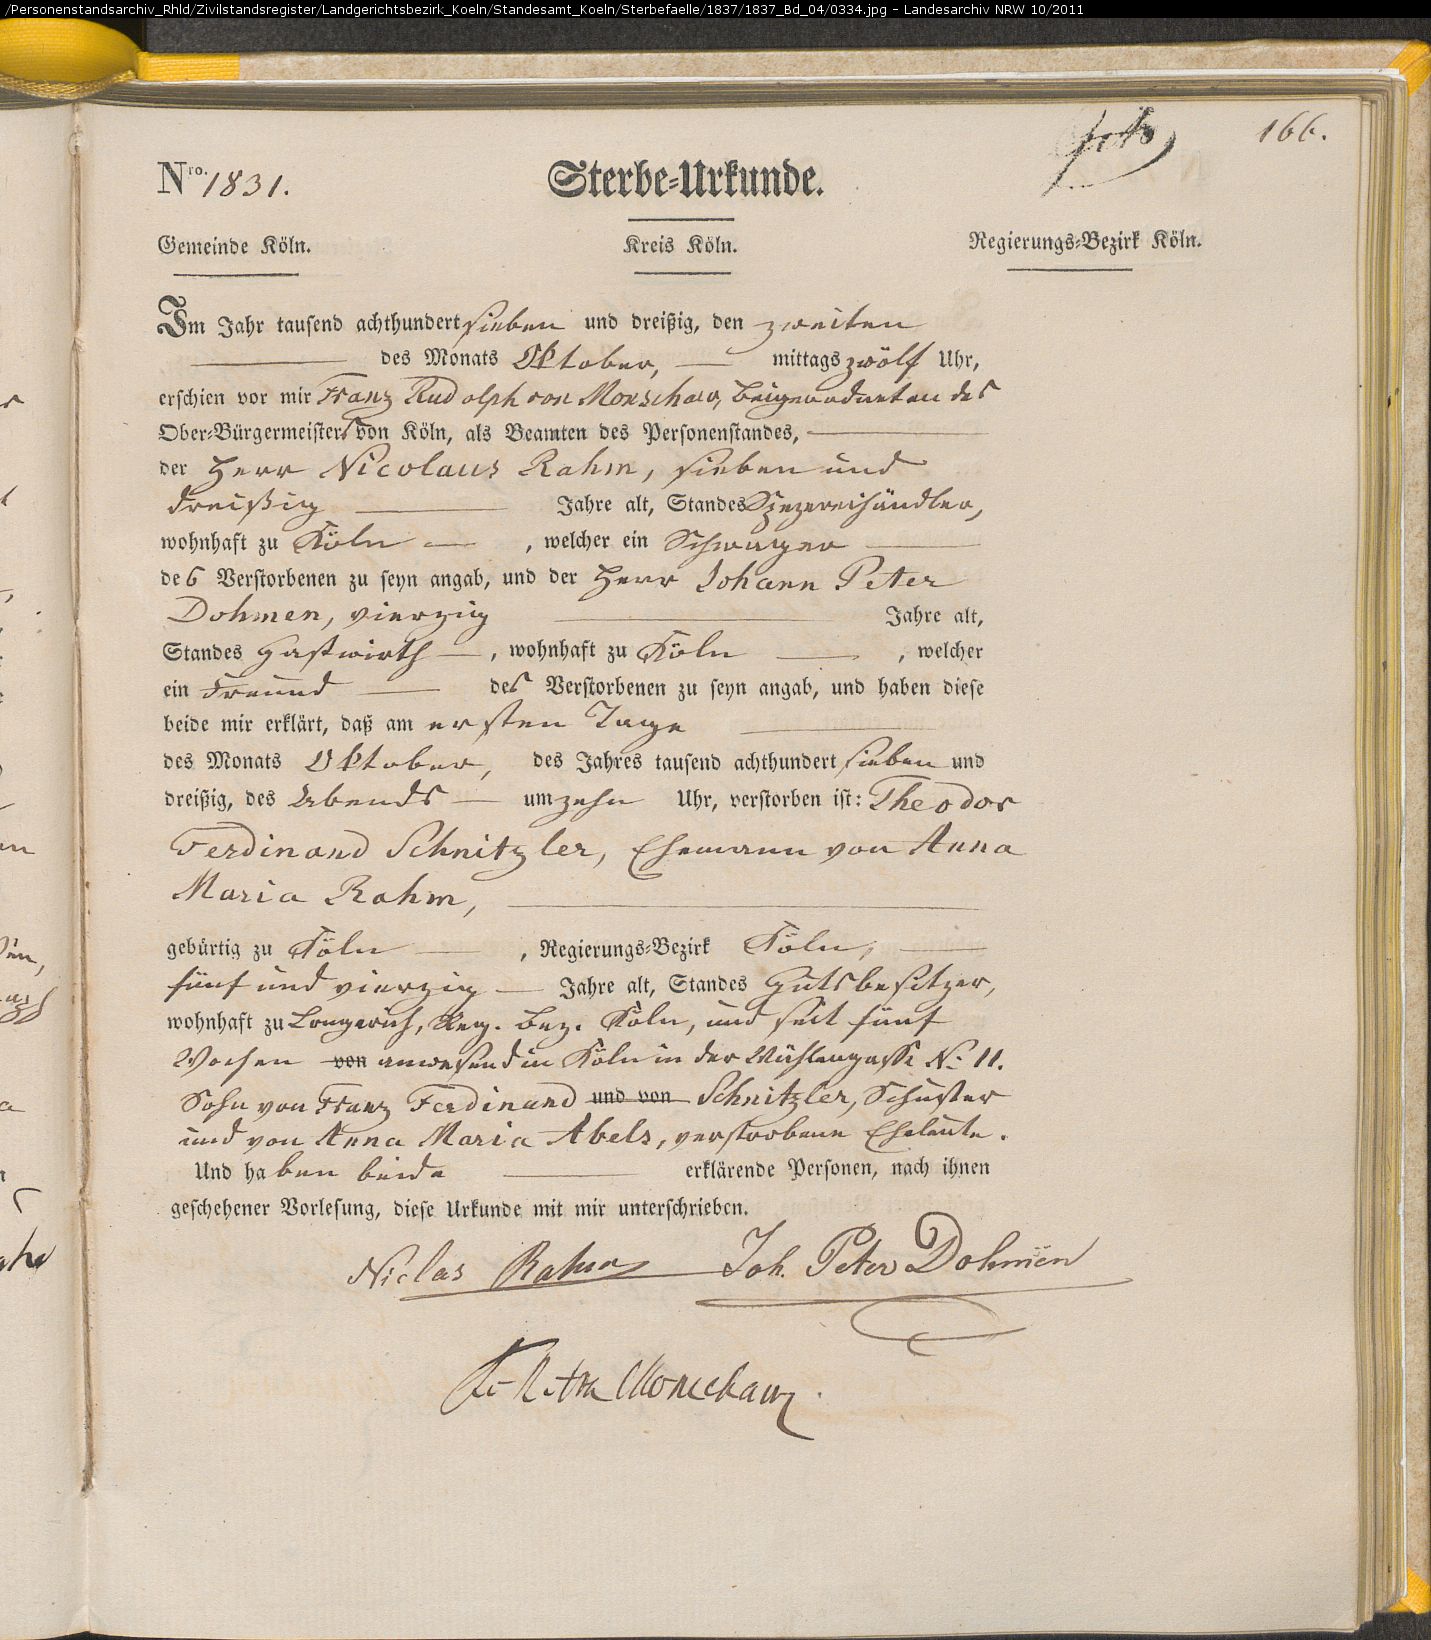 /Personenstandsarchiv_Rhld/Zivilstandsregister/Landgerichtsbezirk_Koeln/Standesamt_Koeln/Sterbefaelle/1837/1837_Bd_04/0334.jpg - Landesarchiv NRW 10/2011
166.
Nro. 1831.
Sterbe-Urkunde.
Gemeinde Köln. Kreis Köln. Regierungs-Bezirk Köln.
Im Jahr tausend achthundert sieben und dreißig, den zweiten
des Monats Oktober, mittags zwölf Uhr,
erschien vor mir Franz Rudolph von Monschaw, Beigeordneten des
Ober-Bürgermeisters von Köln, als Beamten des Personenstandes,
der Herr Nicolaus Rahm, sieben und
dreißig Jahre alt, Standes Spezereihändler,
wohnhaft zu Köln, welcher ein Schwager
des Verstorbenen zu seyn angab, und der Herr Johann Peter
Dohmen, vierzig Jahre alt,
Standes Gastwirth, wohnhaft zu Köln, welcher
ein Freund des Verstorbenen zu seyn angab, und haben diese
beide mir erklärt, daß am ersten Tage
des Monats Oktober, des Jahres tausend achthundert sieben und
dreißig, des Abends um zehn Uhr, verstorben ist: Theodor
Ferdinand Schnitzler, Ehemann von Anna
Maria Rahm,
gebürtig zu Köln, Regierungs-Bezirk Köln,
fünf und vierzig Jahre alt, Standes Gutsbesitzer,
wohnhaft zu Longerich, Reg. Bez. Köln, und seit fünf
Wochen von anwesend in Köln in der Mühlengasse No 11.
Sohn von Franz Ferdinand und von Schnitzler, Schuster
und von Anna Maria Abels, verstorbene Eheleute.
Und haben beide erklärende Personen, nach ihnen
geschehener Vorlesung, diese Urkunde mit mir unterschrieben.
Niclas Rahm Joh. Peter Dohmen
Monschaw